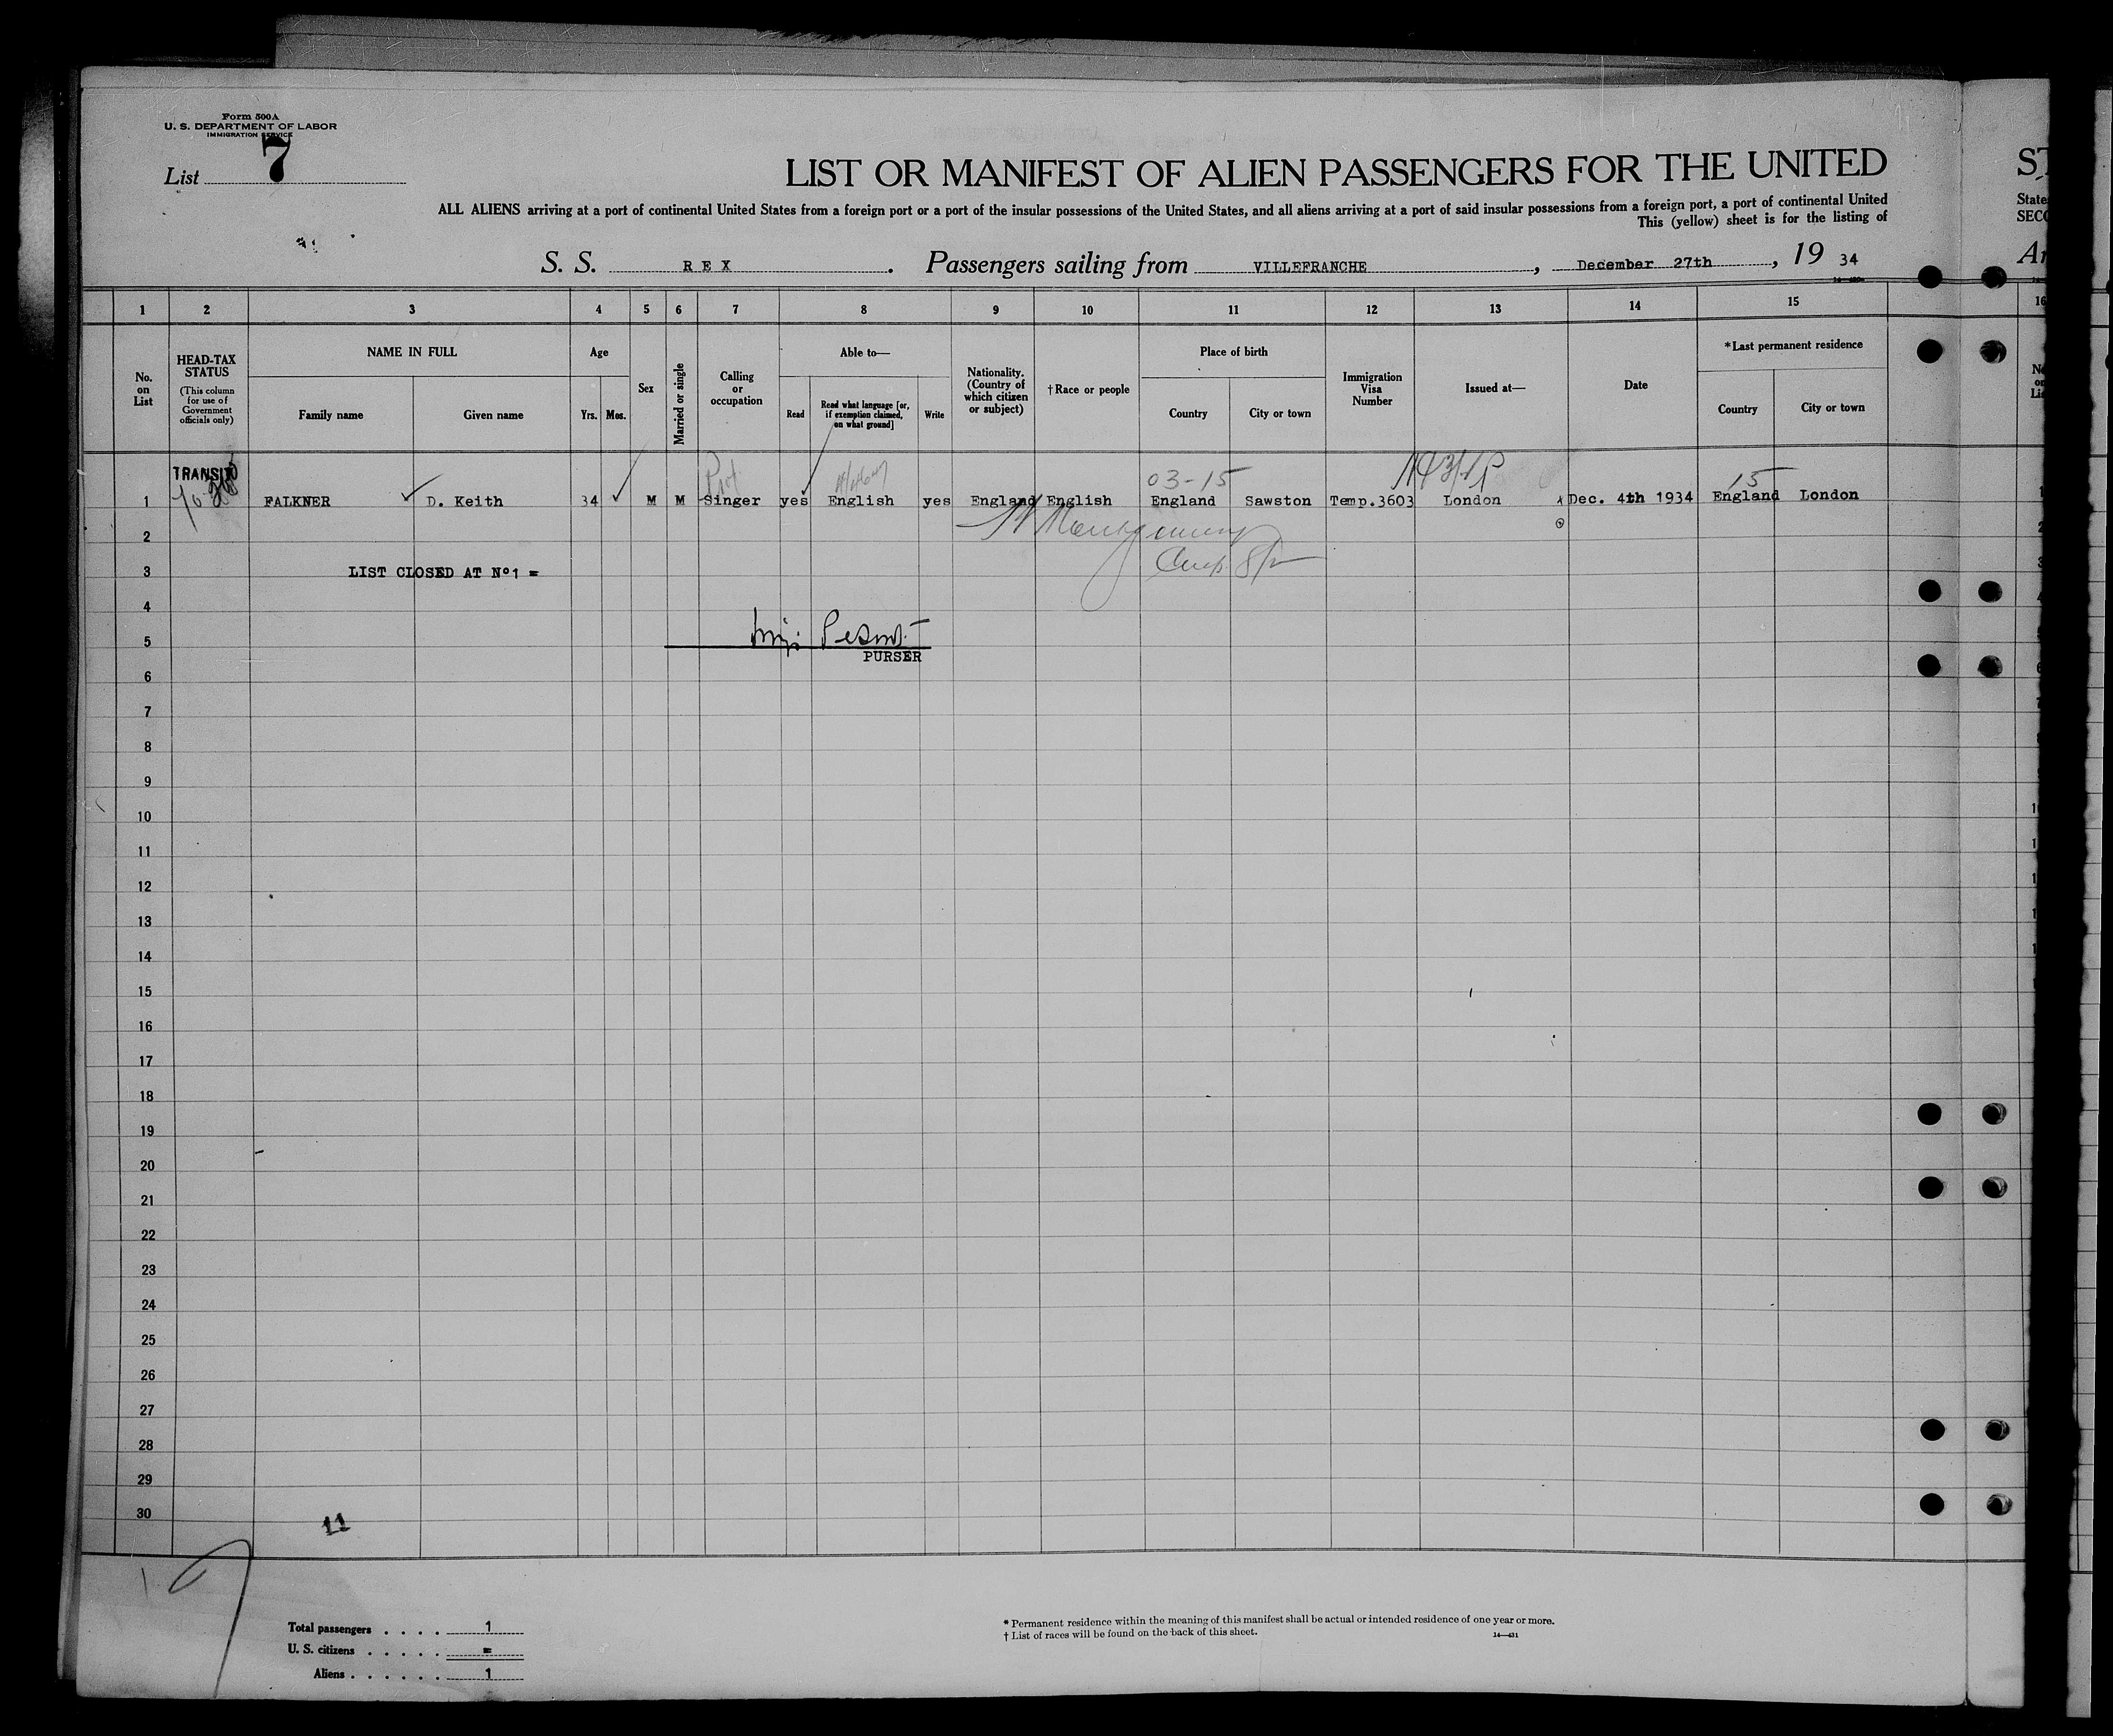 Form 500A
U. S. DEPARTMENT OF LABOR
IMMIGRATION SERVICE
List 7
LIST OR MANIFEST OF ALIEN PASSENGERS FOR THE UNITED
ST
ALL ALIENS arriving at a port of continental United States from a foreign port or a port of the insular possessions of the United States, and all aliens arriving at a port of said insular possessions from a foreign port, a port of continental United
State
This (yellow) sheet is for the listing of
SECO
S. S. REX. Passengers sailing from VILLEFRANCHE, December 27th, 19 34
Ar
1 2 3 4 5 6 7 8 9 10 11 12 13 14 15 16
No. on List
HEAD-TAX STATUS
(This column for use of Government officials only)
NAME IN FULL
Family name
Given name
Age
Yrs. Mos.
Sex
Married or single
Calling or occupation
Able to—
Read
Read what language [or, if exemption claimed, on what ground]
Write
Nationality. (Country of which citizen or subject)
† Race or people
Place of birth
Country
City or town
Immigration Visa Number
Issued at—
Date
*Last permanent residence
Country
City or town
TRANSIT
03-15
15
1 FALKNER D. Keith 34 M M Singer yes English yes England English England Sawston Temp.3603 London Dec. 4th 1934 England London
2
Montgomery
3 LIST CLOSED AT Nº1 =
4
5
PURSER
6
7
8
9
10
11
12
13
14
15
16
17
18
19
20
21
22
23
24
25
26
27
28
29
30
11
Total passengers . . . . 1
U. S. citizens . . . . . =
Aliens . . . . . . 1
* Permanent residence within the meaning of this manifest shall be actual or intended residence of one year or more.
† List of races will be found on the back of this sheet.
14—431